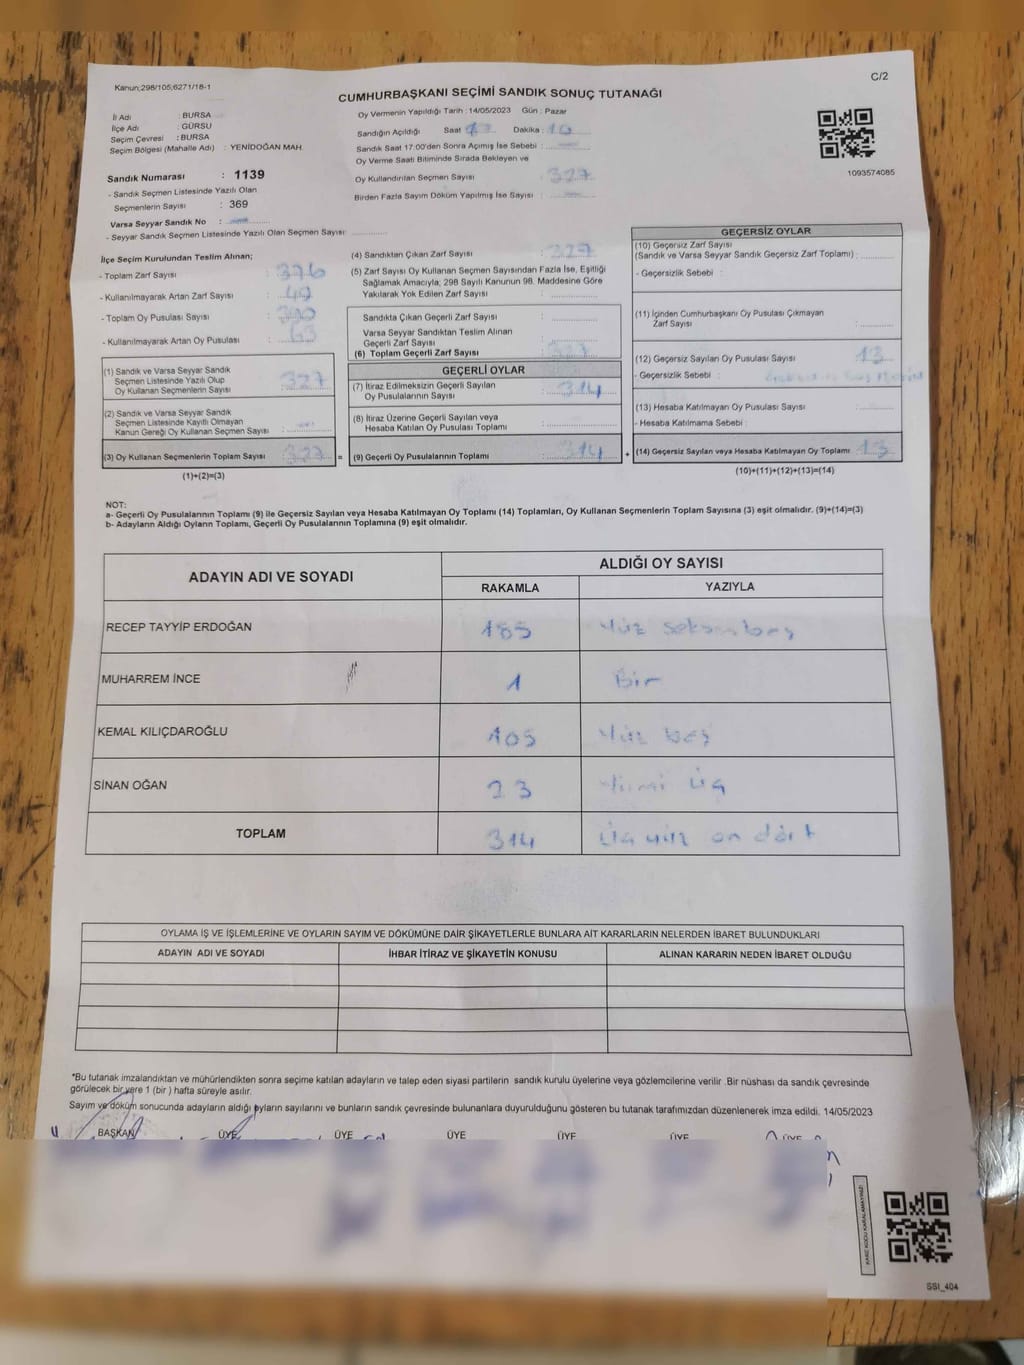 Kanun;298/105;6271/18-1
C/2
CUMHURBAŞKANI SEÇİMİ SANDIK SONUÇ TUTANAĞI
İl Adı : BURSA
İlçe Adı : GÜRSU
Seçim Çevresi : BURSA
Seçim Bölgesi (Mahalle Adı) : YENİDOĞAN MAH.
Sandık Numarası : 1139
- Sandık Seçmen Listesinde Yazılı Olan
Seçmenlerin Sayısı : 369
Varsa Seyyar Sandık No :
- Seyyar Sandık Seçmen Listesinde Yazılı Olan Seçmen Sayısı
Oy Vermenin Yapıldığı Tarih : 14/05/2023 Gün : Pazar
Sandığın Açıldığı Saat 17 Dakika : 10
Sandık Saat 17:00'den Sonra Açımış İse Sebebi :
Oy Verme Saati Bitiminde Sırada Bekleyen ve
Oy Kullandırılan Seçmen Sayısı : 327
Birden Fazla Sayım Döküm Yapılmış İse Sayısı :
1093574085
İlçe Seçim Kurulundan Teslim Alınan;
- Toplam Zarf Sayısı : 376
- Kullanılmayarak Artan Zarf Sayısı : 49
- Toplam Oy Pusulası Sayısı :
- Kullanılmayarak Artan Oy Pusulası : 63
(1) Sandık ve Varsa Seyyar Sandık
Seçmen Listesinde Yazılı Olup
Oy Kullanan Seçmenlerin Sayısı : 327
(2) Sandık ve Varsa Seyyar Sandık
Seçmen Listesinde Kayıtlı Olmayan
Kanun Gereği Oy Kullanan Seçmen Sayısı :
(3) Oy Kullanan Seçmenlerin Toplam Sayısı : 327
(1)+(2)=(3)
=
(4) Sandıktan Çıkan Zarf Sayısı : 327
(5) Zarf Sayısı Oy Kullanan Seçmen Sayısından Fazla İse, Eşitliği
Sağlamak Amacıyla; 298 Sayılı Kanunun 98. Maddesine Göre
Yakılarak Yok Edilen Zarf Sayısı :
Sandıkta Çıkan Geçerli Zarf Sayısı :
Varsa Seyyar Sandıktan Teslim Alınan
Geçerli Zarf Sayısı :
(6) Toplam Geçerli Zarf Sayısı : 327
GEÇERLİ OYLAR
(7) İtiraz Edilmeksizin Geçerli Sayılan
Oy Pusulalarının Sayısı : 314
(8) İtiraz Üzerine Geçerli Sayılan veya
Hesaba Katılan Oy Pusulası Toplamı :
(9) Geçerli Oy Pusulalarının Toplamı : 314
+
GEÇERSİZ OYLAR
(10) Geçersiz Zarf Sayısı
(Sandık ve Varsa Seyyar Sandık Geçersiz Zarf Toplamı) :
- Geçersizlik Sebebi :
(11) İçinden Cumhurbaşkanı Oy Pusulası Çıkmayan
Zarf Sayısı :
(12) Geçersiz Sayılan Oy Pusulası Sayısı : 13
- Geçersizlik Sebebi :
(13) Hesaba Katılmayan Oy Pusulası Sayısı :
- Hesaba Katılmama Sebebi :
(14) Geçersiz Sayılan veya Hesaba Katılmayan Oy Toplamı : 13
(10)+(11)+(12)+(13)=(14)
NOT:
a- Geçerli Oy Pusulalarının Toplamı (9) ile Geçersiz Sayılan veya Hesaba Katılmayan Oy Toplamı (14) Toplamları, Oy Kullanan Seçmenlerin Toplam Sayısına (3) eşit olmalıdır. (9)+(14)=(3)
b- Adayların Aldığı Oyların Toplamı, Geçerli Oy Pusulalarının Toplamına (9) eşit olmalıdır.
ADAYIN ADI VE SOYADI ALDIĞI OY SAYISI
RAKAMLA YAZIYLA
RECEP TAYYİP ERDOĞAN 185 Yüz seksen beş
MUHARREM İNCE 1 Bir
KEMAL KILIÇDAROĞLU 105 Yüz beş
SİNAN OĞAN 23 Yirmi Üç
TOPLAM 314 Üç yüz on dört
OYLAMA İŞ VE İŞLEMLERİNE VE OYLARIN SAYIM VE DÖKÜMÜNE DAİR ŞİKAYETLERLE BUNLARA AİT KARARLARIN NELERDEN İBARET BULUNDUKLARI
ADAYIN ADI VE SOYADI İHBAR İTİRAZ VE ŞİKAYETİN KONUSU ALINAN KARARIN NEDEN İBARET OLDUĞU
*Bu tutanak imzalandıktan ve mühürlendikten sonra seçime katılan adayların ve talep eden siyasi partilerin sandık kurulu üyelerine veya gözlemcilerine verilir .Bir nüshası da sandık çevresinde
görülecek bir yere 1 (bir ) hafta süreyle asılır.
Sayım ve döküm sonucunda adayların aldığı oyların sayılarını ve bunların sandık çevresinde bulunanlara duyurulduğunu gösteren bu tutanak tarafımızdan düzenlenerek imza edildi. 14/05/2023
BAŞKAN ÜYE ÜYE ÜYE ÜYE ÜYE ÜYE
KARE KODU KARALAMAYINIZ!
SSI_404